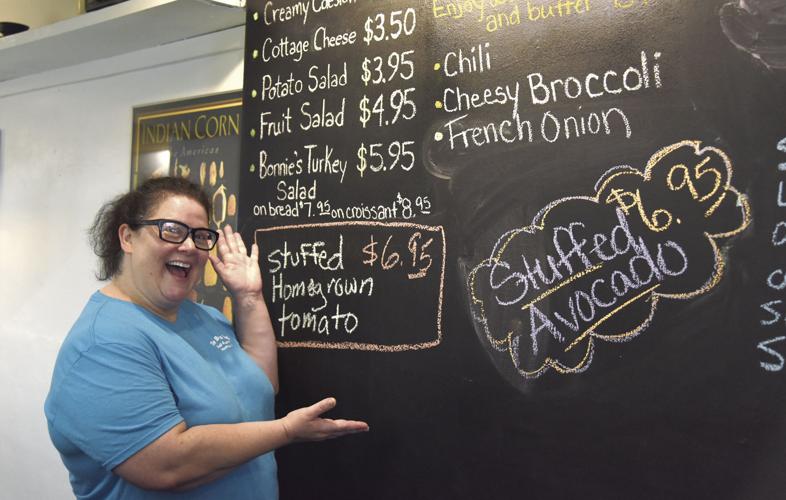 Creamy
Cottage Cheese $3.50
Potato Salad $3.95
Fruit Salad $4.95
Bonnie's Turkey $5.95
Salad
on bread $7.95 on croissant $8.95
stuffed $6.95
Homegrown
tomato
Enjoy
and butter
• Chili
• Cheesy Broccoli
• French Onion
$6.95
Stuffed
Avocado
INDIAN CORN
American